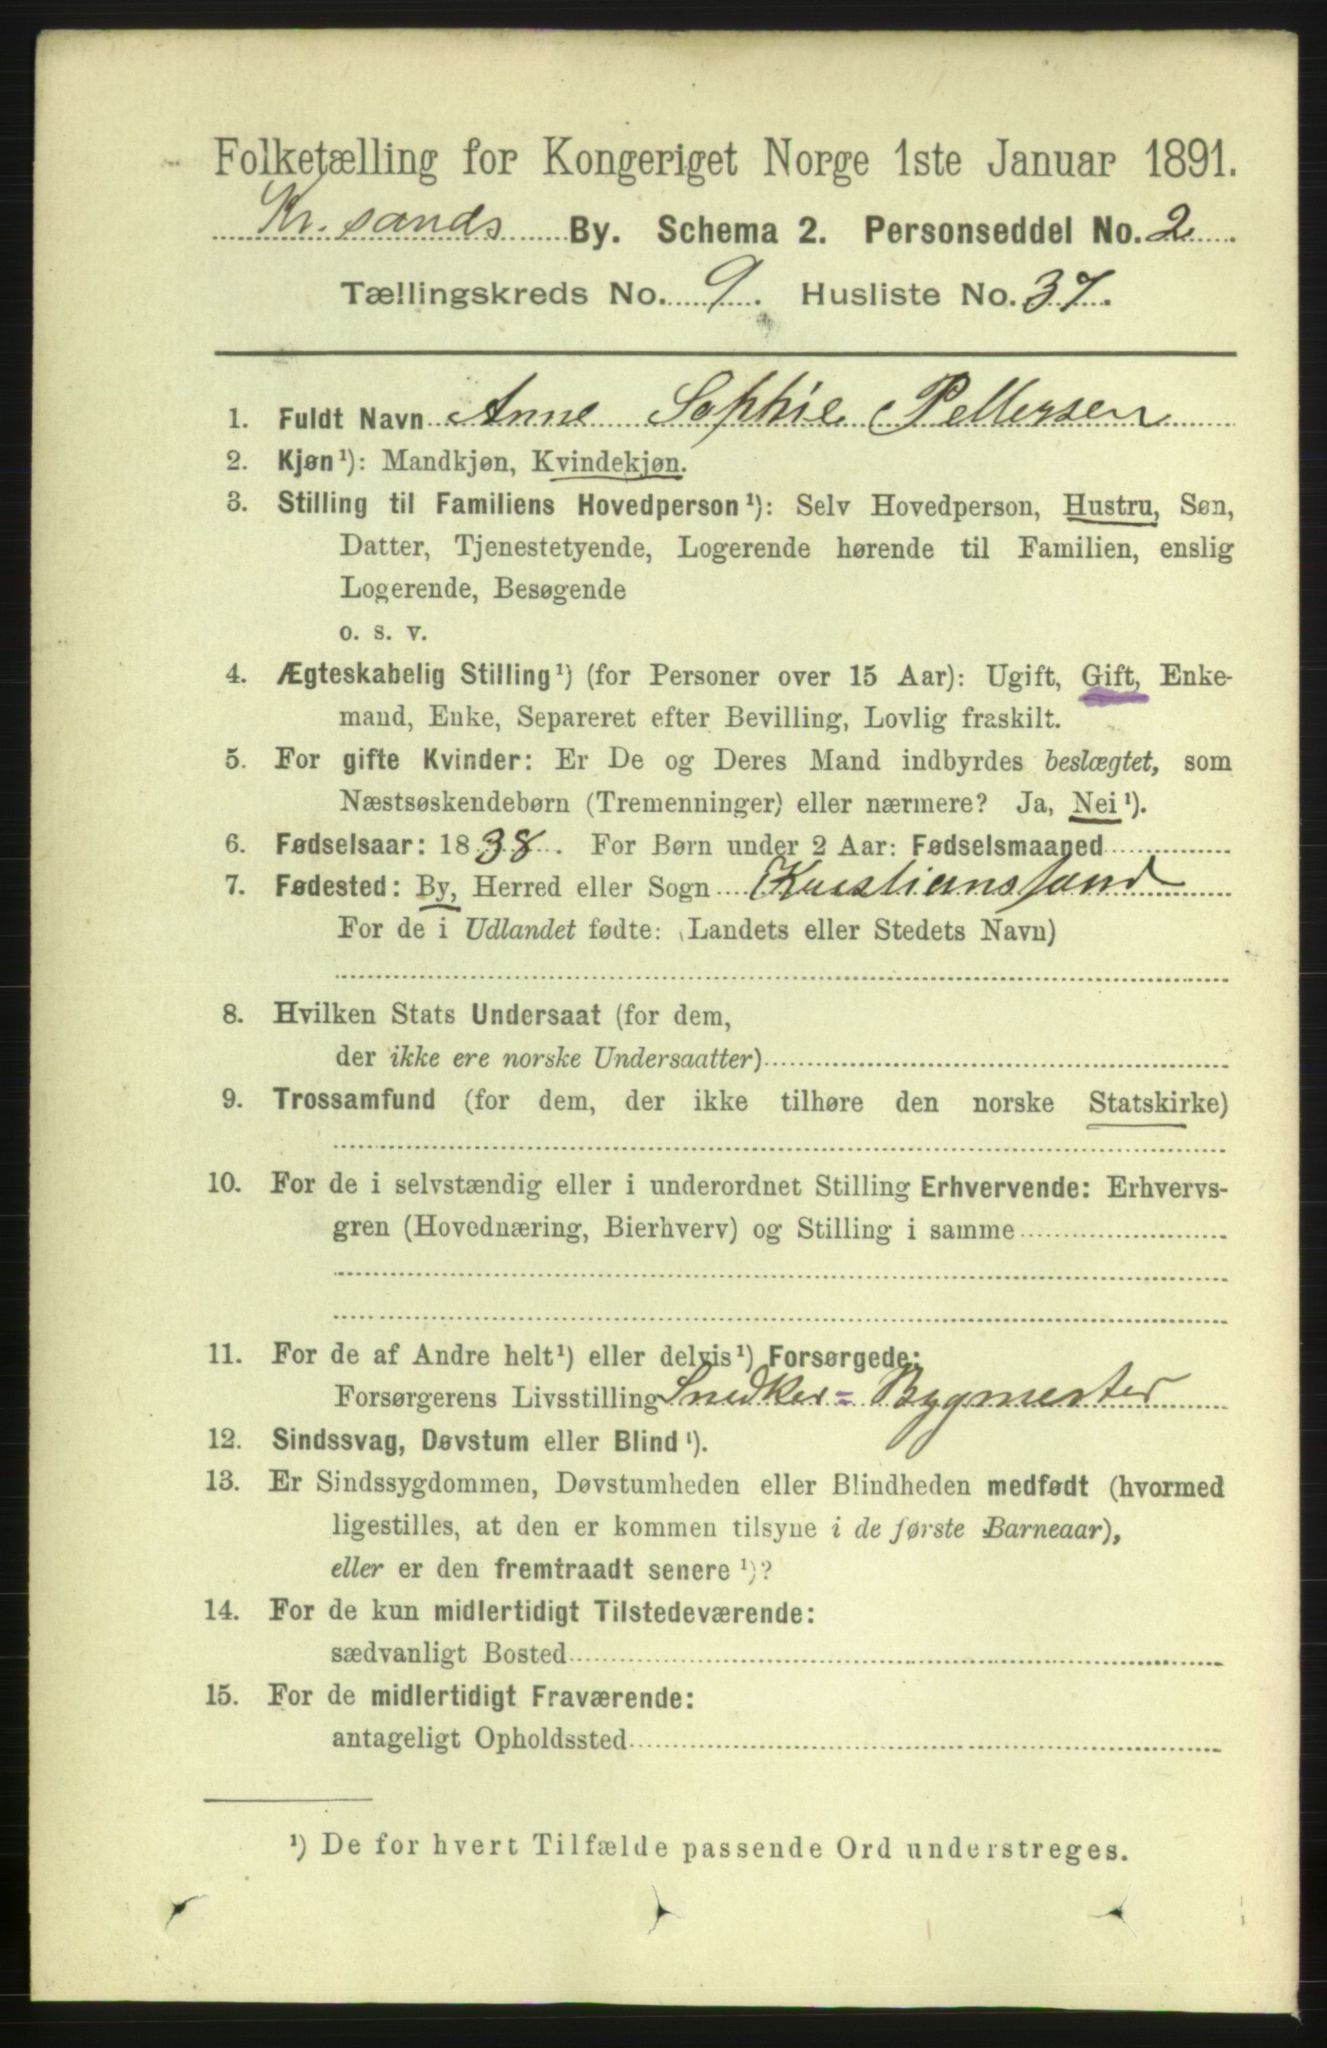 Folketælling for Kongeriget Norge 1ste Januar 1891.
Kr.sands By. Schema 2. Personseddel No. 2
Tællingskreds No. 9. Husliste No. 37.
1. Fuldt Navn Anne Sophie Pettersen
2. Kjøn¹): Mandkjøn, Kvindekjøn.
3. Stilling til Familiens Hovedperson¹): Selv Hovedperson, Hustru, Søn,
Datter, Tjenestetyende, Logerende hørende til Familien, enslig
Logerende, Besøgende
o. s. v.
4. Ægteskabelig Stilling¹) (for Personer over 15 Aar): Ugift, Gift, Enke-
mand, Enke, Separeret efter Bevilling, Lovlig fraskilt.
5. For gifte Kvinder: Er De og Deres Mand indbyrdes beslægtet, som
Næstsøskendebørn (Tremenninger) eller nærmere? Ja, Nei¹).
6. Fødselsaar: 1838. For Børn under 2 Aar: Fødselsmaaned
7. Fødested: By, Herred eller Sogn Kristianssand
For de i Udlandet fødte: (Landets eller Stedets Navn)
8. Hvilken Stats Undersaat (for dem,
der ikke ere norske Undersaatter)
9. Trossamfund (for dem, der ikke tilhøre den norske Statskirke)
10. For de i selvstændig eller i underordnet Stilling Erhvervende: Erhvervs-
gren (Hovednæring, Bierhverv) og Stilling i samme
11. For de af Andre helt¹) eller delvis¹) Forsørgede:
Forsørgerens Livsstilling Snedker = Bygmester
12. Sindssvag, Døvstum eller Blind¹).
13. Er Sindssygdommen, Døvstumheden eller Blindheden medfødt (hvormed
ligestilles, at den er kommen tilsyne i de første Barneaar),
eller er den fremtraadt senere¹)?
14. For de kun midlertidigt Tilstedeværende:
sædvanligt Bosted
15. For de midlertidigt Fraværende:
antageligt Opholdssted
¹) De for hvert Tilfælde passende Ord understreges.